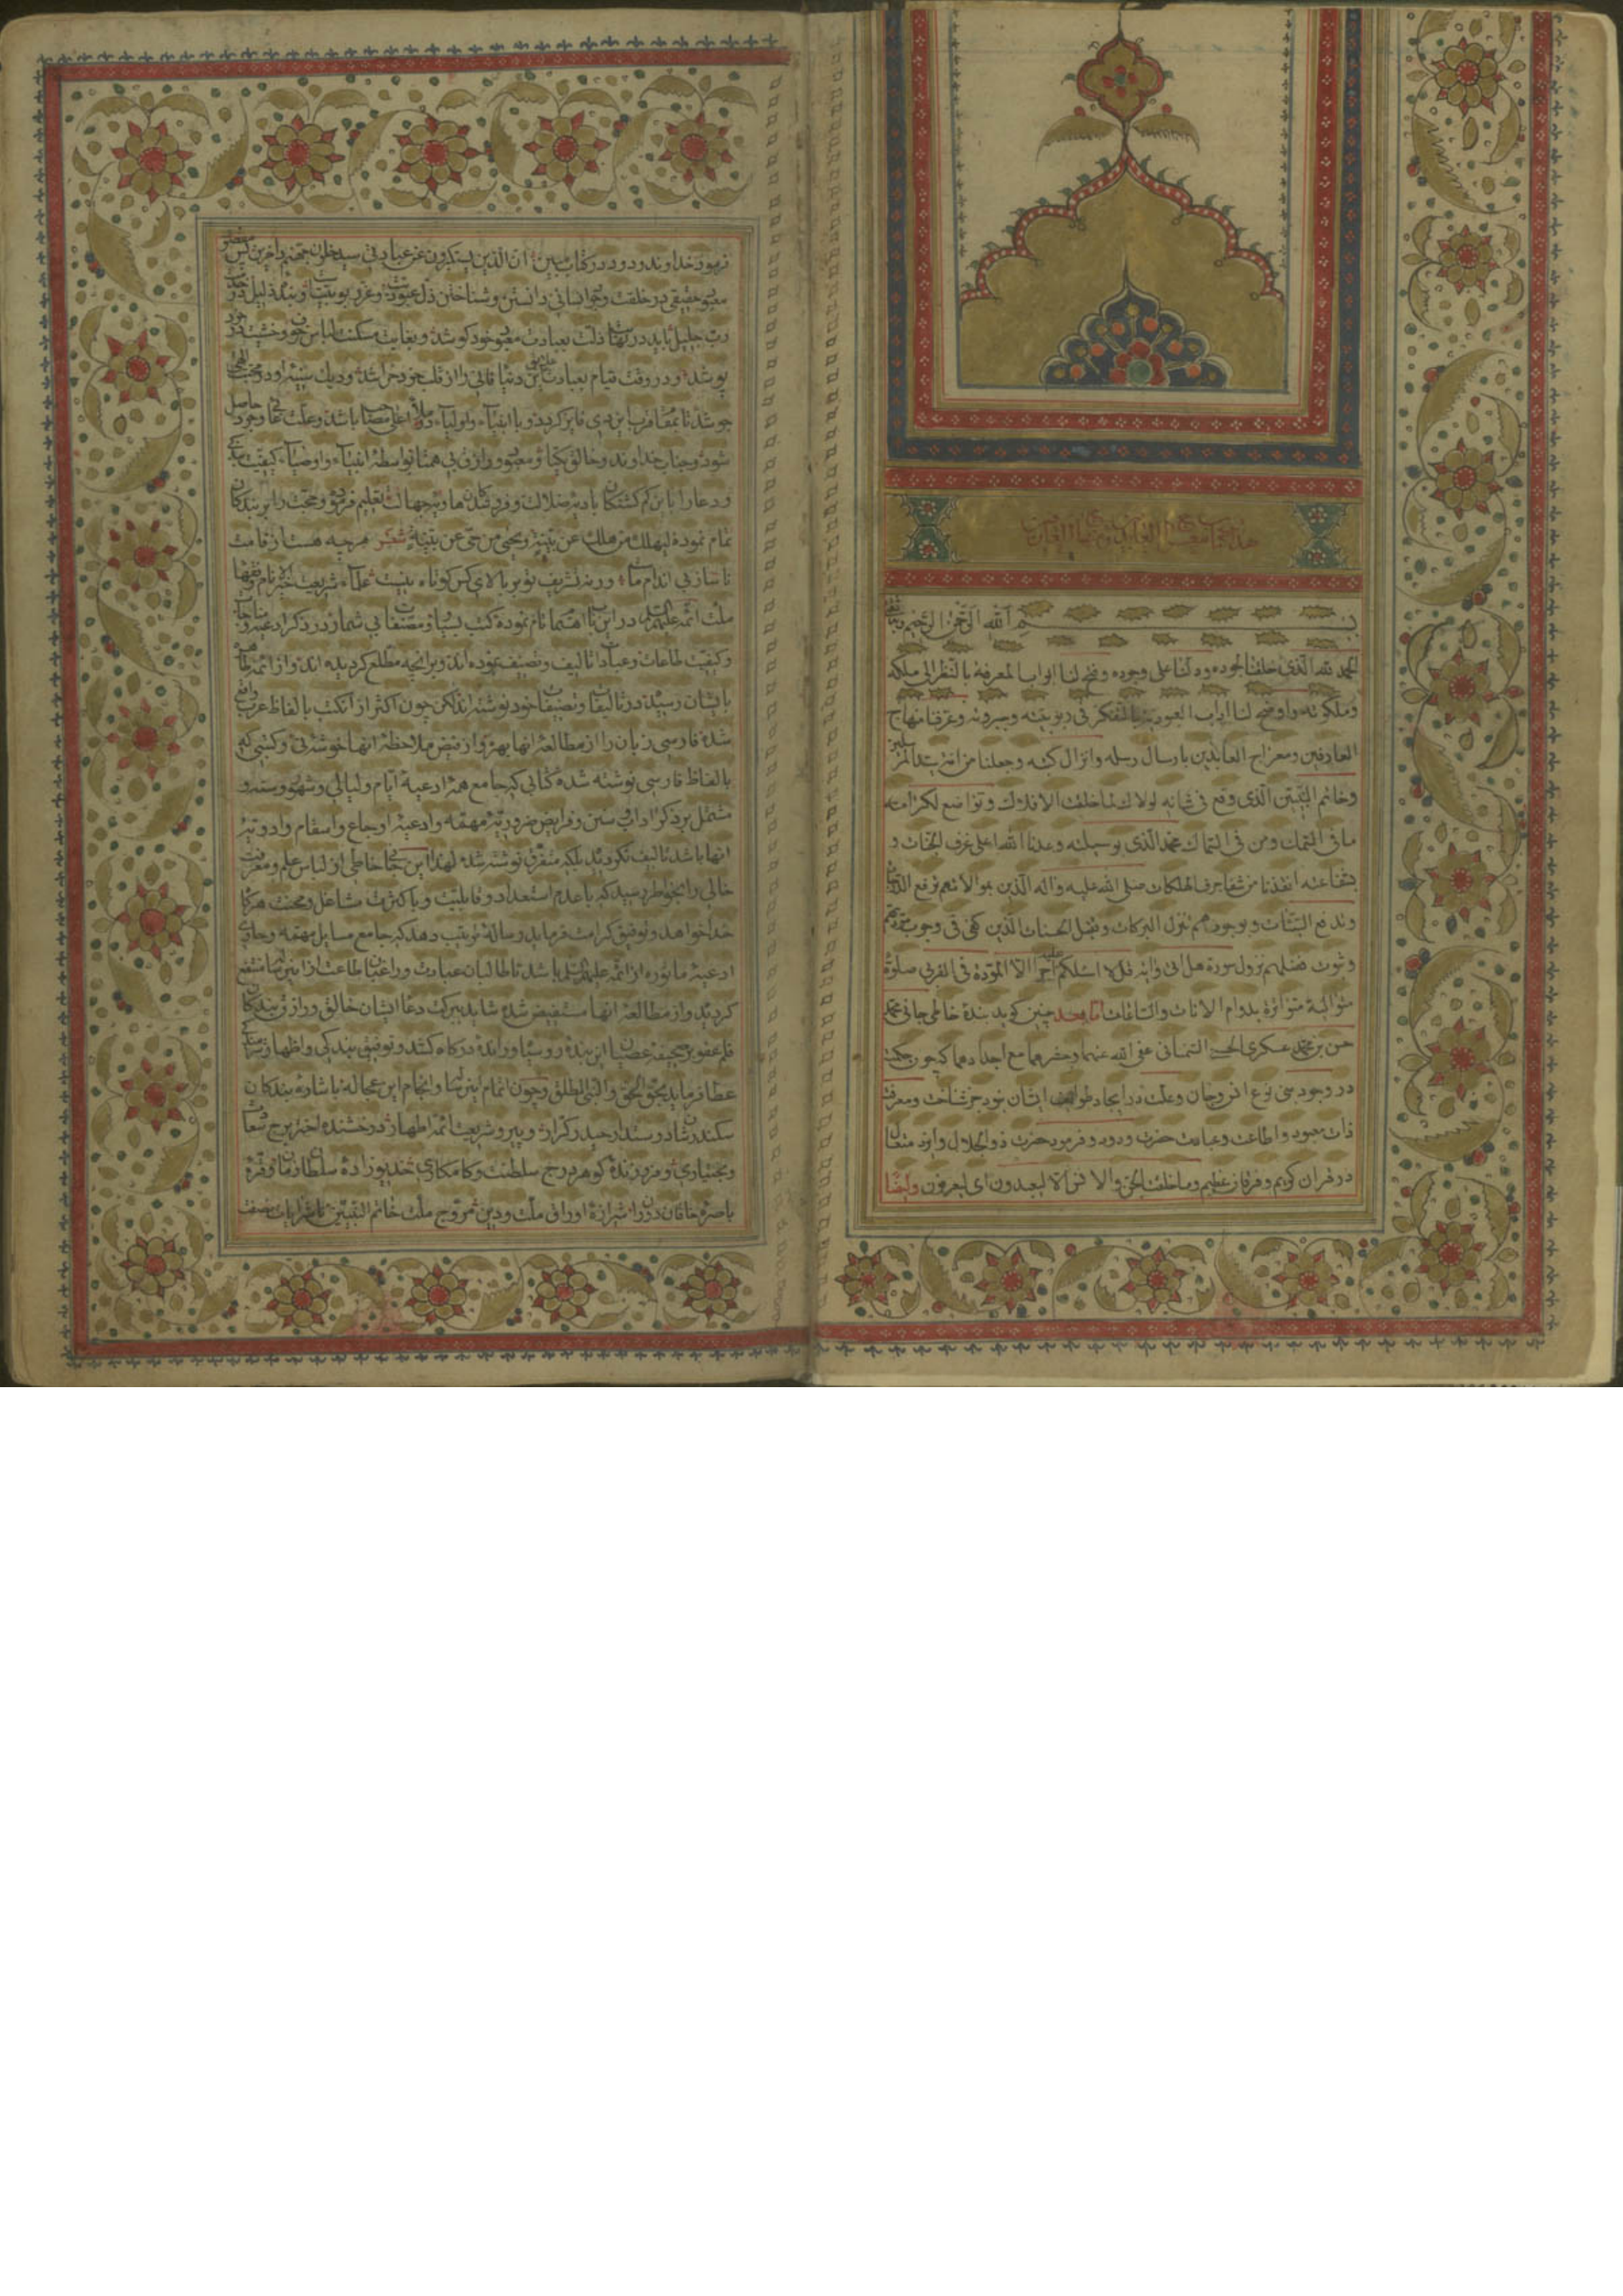 بسم الله الرحمن الرحیم
الحمد لله الذی خلقنا لجوده ودلنا علی وجوده وفتح لنا ابواب المعرفة بالنظر الی ملکه
وملکوته واوضح لنا اداب العبودیة بالتفکر فی ربوبیته وعرفنا منهاج
العارفین ومعراج العابدین بارسال رسله وانزال کتبه وجعلنا من امة سید المرسلین
وخاتم النبیین الذی وقع فی شانه لولاک لما خلقت الافلاک وتواضع لکرامته
ما فی السمک ومن فی السماک محمد الذی بوسیلته وعدنا الله اعلی غرف الجنات و
بشفاعته انقذنا من شفا جرف الهلکات صلی الله علیه واله الذین بولائهم ترفع الدرجات
وتدفع السیئات وبوجودهم تنزل البرکات وتقبل الحسنات الذین کفی فی وجوب مودتهم
وثبوت فضلهم نزول سورة هل اتی وایة قل لا اسئلکم علیه اجرا الا المودة فی القربی صلوة
متوالیة متواترة بدوام الانات والساعات اما بعد چنین گوید بندۀ خاطی جانی محمد
حسن بن محمد عسکری عفی الله عنهما وحشرهما مع اجدادهما که چون حکمت
در وجود بنی نوع انس وجان وعلت در ایجاد طوایف ایشان بود جز شناخت ومعرفت
ذات معبود واطاعت وعبادت حضرت ودود وفرمود حضرت ذو الجلال وایزد متعال
در قران کریم وفرقان عظیم وما خلقت الجن والانس الا لیعبدون ای لیعرفون وایضا
فرمود خداوند ودود در کتاب مبین ان الذین یستکبرون عن عبادتی سیدخلون جهنم داخرین پس مقصود
حقیقی در خلقت وجوانسانی دانستن وشناختن ذل عبودیت وعز ربوبیت وبندۀ ذلیل در خدمت
رب جلیل باید در نهایت ذلت بعبادت معبود خود کوشد وبغایت مسکنت لباس خوف وخشیت در خود
پوشد ودر وقت قیام بعبادت علایق این دنیا فانی را از قلب خود خراشد ودیک سینه او در محبت الهی
جوشد تا بمقام قرب ایزدی فایز گردد وبا انبیاء واولیاء در ملأ اعلی مصاحب باشد وعلت غائی وجود حاصل
شود وجناب خداوند وخالق یکتا ومعبود ورازق بی همتا بواسطۀ انبیاء واوصیاء کیفیت بندگی
ودعا را باین گم گشتگان بادیۀ ضلالت وفروماندگان هاویۀ جهالت تعلیم فرموده وحجت را بر بندگان
تمام نموده لیهلک من هلک عن بینة ویحیی من حی عن بینة شعر هرچه هست از قامت
ناساز بی اندام ماست ورنه تشریف تو بر بالای کس کوتاه نیست علماء شریعت خیر الانام وفقهاء
ملت ائمه علیهم السلام در این باب اهتمام تام نموده کتب بسیار ومصنفات بی شمار در ذکر ادعیه ومناجات
وکیفیت طاعات وعبادات تالیف وتصنیف نموده اند وبر انچه مطلع گردیده اند واز ائمه طاهرین
بایشان رسیده در تالیفات وتصنیفات خود نوشته اند لکن چون اکثر از آن کتب بالفاظ عربی واقع
شده فارسی زبان را از مطالعۀ انها بهره واز فیض ملاحظۀ انها خوشۀ نی وکتبی که
بالفاظ فارسی نوشته شده کتابی که جامع همۀ ادعیۀ ایام ولیالی وشهور وسنه و
مشتمل بر ذکر اداب وسنن وفرایض ضروریۀ مهمه وادعیۀ اوجاع واسقام وادویۀ
انها باشد تالیف نکردیده بلکه متفرق نوشته شده لهذا این جانی خاطی از لباس علم ومعرفت
خالی را بخواطر رسید که با عدم استعداد وقابلیت وبا کثرت مشاغل ومحنت هرگاه
خدا خواهد وتوفیق کرامت فرماید رسالۀ ترتیب دهد که جامع مسایل مهمه وحاوی
ادعیۀ ماثوره از ائمه علیهم السلام باشد تا طالبان عبادت وراغبان طاعت از این کتاب منتفع
گردیده واز مطالعۀ انها مستفیض شده شاید ببرکت دعا ایشان خالق ورازق بندگان
قلم عفو بر صحیفۀ عصیان این بندۀ روسیاه وراندۀ درگاه کشد وتوفیق بندگی واظهار
عطا فرماید بحق الحق والنبی المطلق وچون اتمام این کتاب وانجام این عجاله باشارۀ بندگان
سکندر شان در سند حیدر کرار وپیرو شریعت ائمه اطهار درخشنده اختر برج
وبختیاری وفروزندۀ گوهر درج سلطنت وکامکاری خدیو زادۀ سلطان زمان وقرة
باصرۀ خاقان دوران شیرازۀ اوراق ملت ودین مروج ملت خاتم النبیین